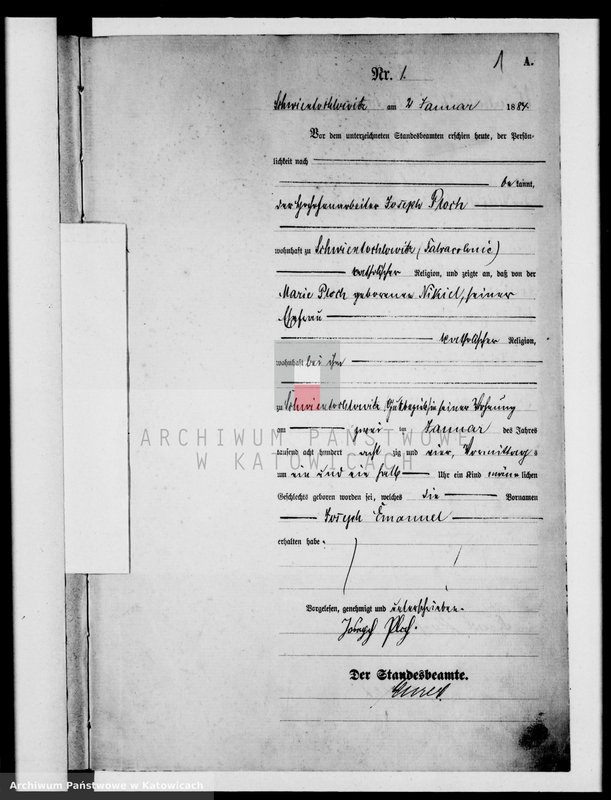 1 A.
Nr. 1.
Schwientochlowitz am 2 Januar 1884.
Vor dem unterzeichneten Standesbeamten erschien heute, der Persön-
lichkeit nach
be kannt,
der Hochofenarbeiter Joseph Ploch
wohnhaft zu Schwientochlowitz (Falvacolonie)
katholischer Religion, und zeigte an, daß von der
Marie Ploch geborenen Nikiel, seiner
Ehefrau
katholischer Religion,
wohnhaft bei ihm
zu Schwientochlowitz, Gutsbezirk in seiner Wohnung
am zwei ten Januar des Jahres
tausend acht hundert acht zig und vier, Vormittag s
um ein und ein halb Uhr ein Kind männ lichen
Geschlechts geboren worden sei, welches die Vornamen
Joseph Emanuel
erhalten habe.
Vorgelesen, genehmigt und unterschrieben.
Joseph Ploch.
Der Standesbeamte.
ARCHIWUM PAŃSTWOWE
W KATOWICACH
Archiwum Państwowe w Katowicach